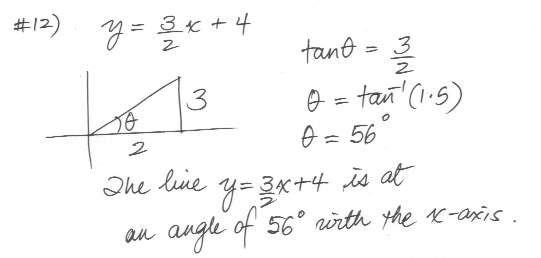 #12) y = 3/2 x + 4
tanθ = 3/2
3
θ
2
θ = tan⁻¹(1.5)
θ = 56°
The line y = 3/2 x + 4 is at
an angle of 56° with the x-axis.